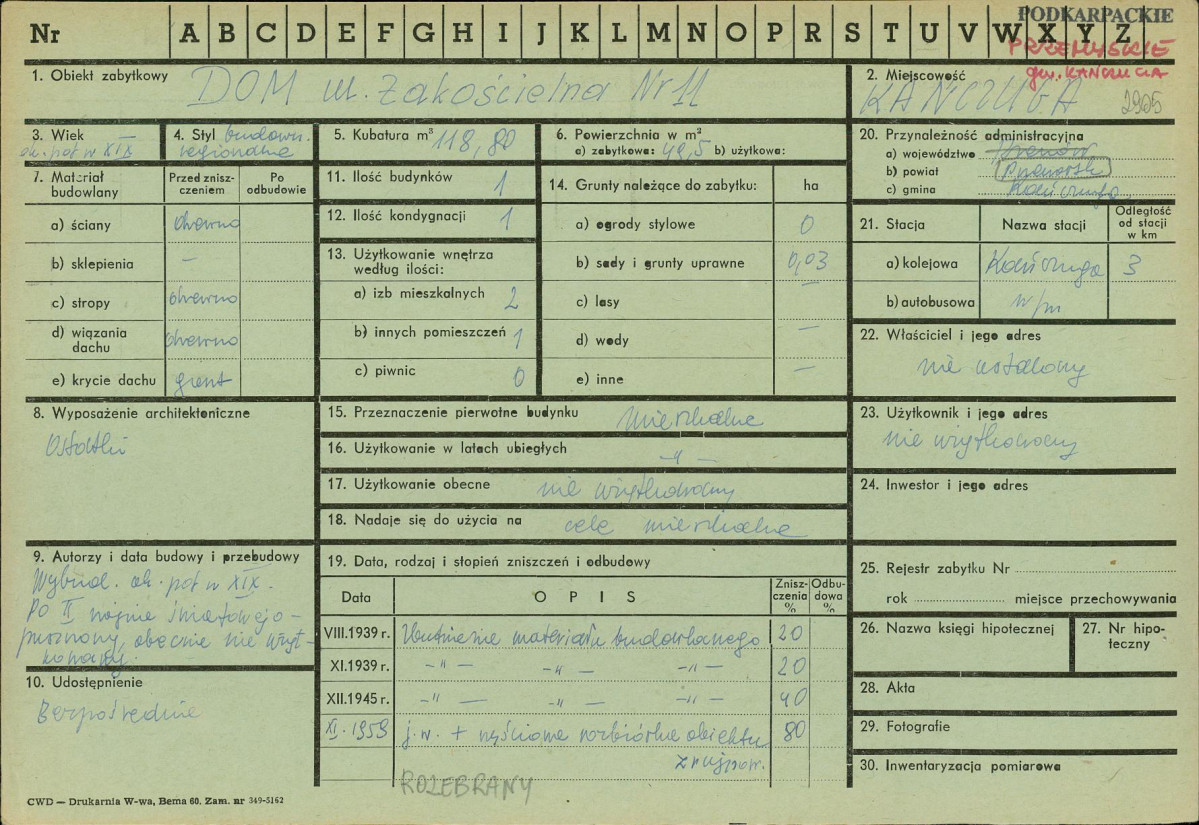 PODKARPACKIE
Nr A B C D E F G H I J K L M N O P R S T U V W X Y Z
PRZEMYSKIE
gm. KAŃCZUGA
1. Obiekt zabytkowy DOM ul. Zakościelna Nr 11
2. Miejscowość KAŃCZUGA 2925
3. Wiek — ok. poł w XIX
4. Styl budown. regionalne
5. Kubatura m³ 118,80
6. Powierzchnia w m²
a) zabytkowa: 49,5 b) użytkowa:
20. Przynależność administracyjna
a) województwo
b) powiat Przeworsk
c) gmina Kańczuga
7. Materiał budowlany
Przed zniszczeniem
Po odbudowie
a) ściany drewno
b) sklepienia —
c) stropy drewno
d) wiązania dachu drewno
e) krycie dachu gont
11. Ilość budynków 1
12. Ilość kondygnacji 1
13. Użytkowanie wnętrza według ilości:
a) izb mieszkalnych 2
b) innych pomieszczeń 1
c) piwnic 0
14. Grunty należące do zabytku: ha
a) ogrody stylowe 0
b) sady i grunty uprawne 0,03
c) lasy —
d) wody —
e) inne —
21. Stacja
Nazwa stacji
Odległość od stacji w km
a) kolejowa Kańczuga 3
b) autobusowa w/m
22. Właściciel i jego adres
nie ustalony
8. Wyposażenie architektoniczne
Ostatki
15. Przeznaczenie pierwotne budynku mieszkalne
16. Użytkowanie w latach ubiegłych —"—
17. Użytkowanie obecne nie użytkowany
18. Nadaje się do użycia na cele mieszkalne
23. Użytkownik i jego adres
nie użytkowany
24. Inwestor i jego adres
9. Autorzy i data budowy i przebudowy
Wybud. ok. poł w XIX.
Po II wojnie światowej -
opuszczony, obecnie nie użyt-
kowany.
10. Udostępnienie
Bezpośrednie
19. Data, rodzaj i stopień zniszczeń i odbudowy
Data OPIS Zniszczenia % Odbudowa %
VIII.1939 r. Utlenienie materiału budowlanego 20
XI.1939 r. —"— —"— —"— 20
XII.1945 r. —"— —"— —"— 40
XI.1959 j.w. + częściowa rozbiórka obiektu 80
ROZEBRANY
25. Rejestr zabytku Nr
rok miejsce przechowywania
26. Nazwa księgi hipotecznej
27. Nr hipoteczny
28. Akta
29. Fotografie
30. Inwentaryzacja pomiarowa
CWD — Drukarnia W-wa, Bema 60. Zam. nr 349-5162